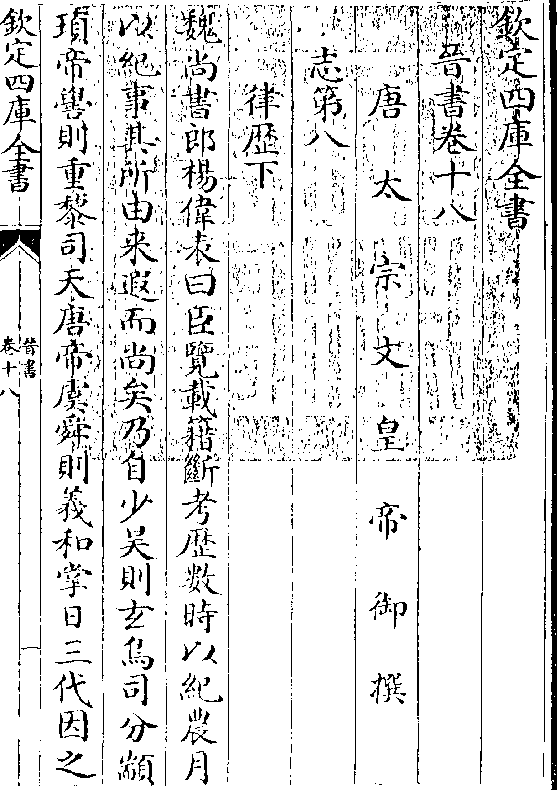 欽定四庫全書
晉書卷十八
唐太宗文皇帝御撰
志第八
律歴下
魏尚書郎楊偉表曰臣覽載籍斷考歴數時以紀農月
以紀事其所由來遐而尚矣乃自少昊則𤣥鳥司分顓
頊帝嚳則重黎司天唐帝虞舜則羲和掌日三代因之
欽定四庫全書
晉書
卷十八
一